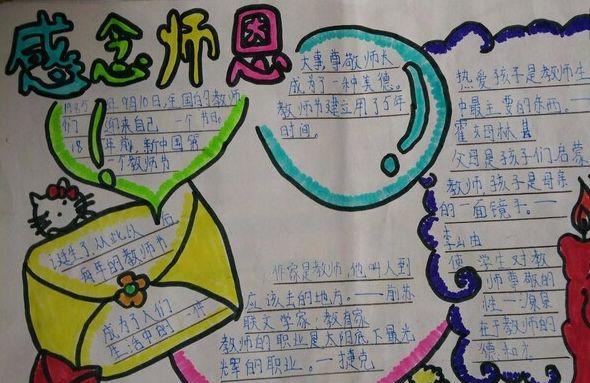 感念师恩
1985年9月10日,全国的教师
们迎来自己一个节日。
18年哉,新中国第
一个教师节
诞生了,从此以后
每年的教师节
成为了人们
生活中的一种
大事尊敬师长
成为了一种美德。
教师节建立用了5年
时间。
作家是教师,他叫人到
应该去的地方。——前苏
联文学家、教育家
教师的职业是太阳底下最光
辉的职业。——捷克
热爱孩子是教师生
中最主要的东西。——
霍姆林
父母是孩子们启蒙
教师,孩子是母亲
的一面镜子。——
使 学生对教
师尊敬的
惟一源泉
在于教师的
德和才